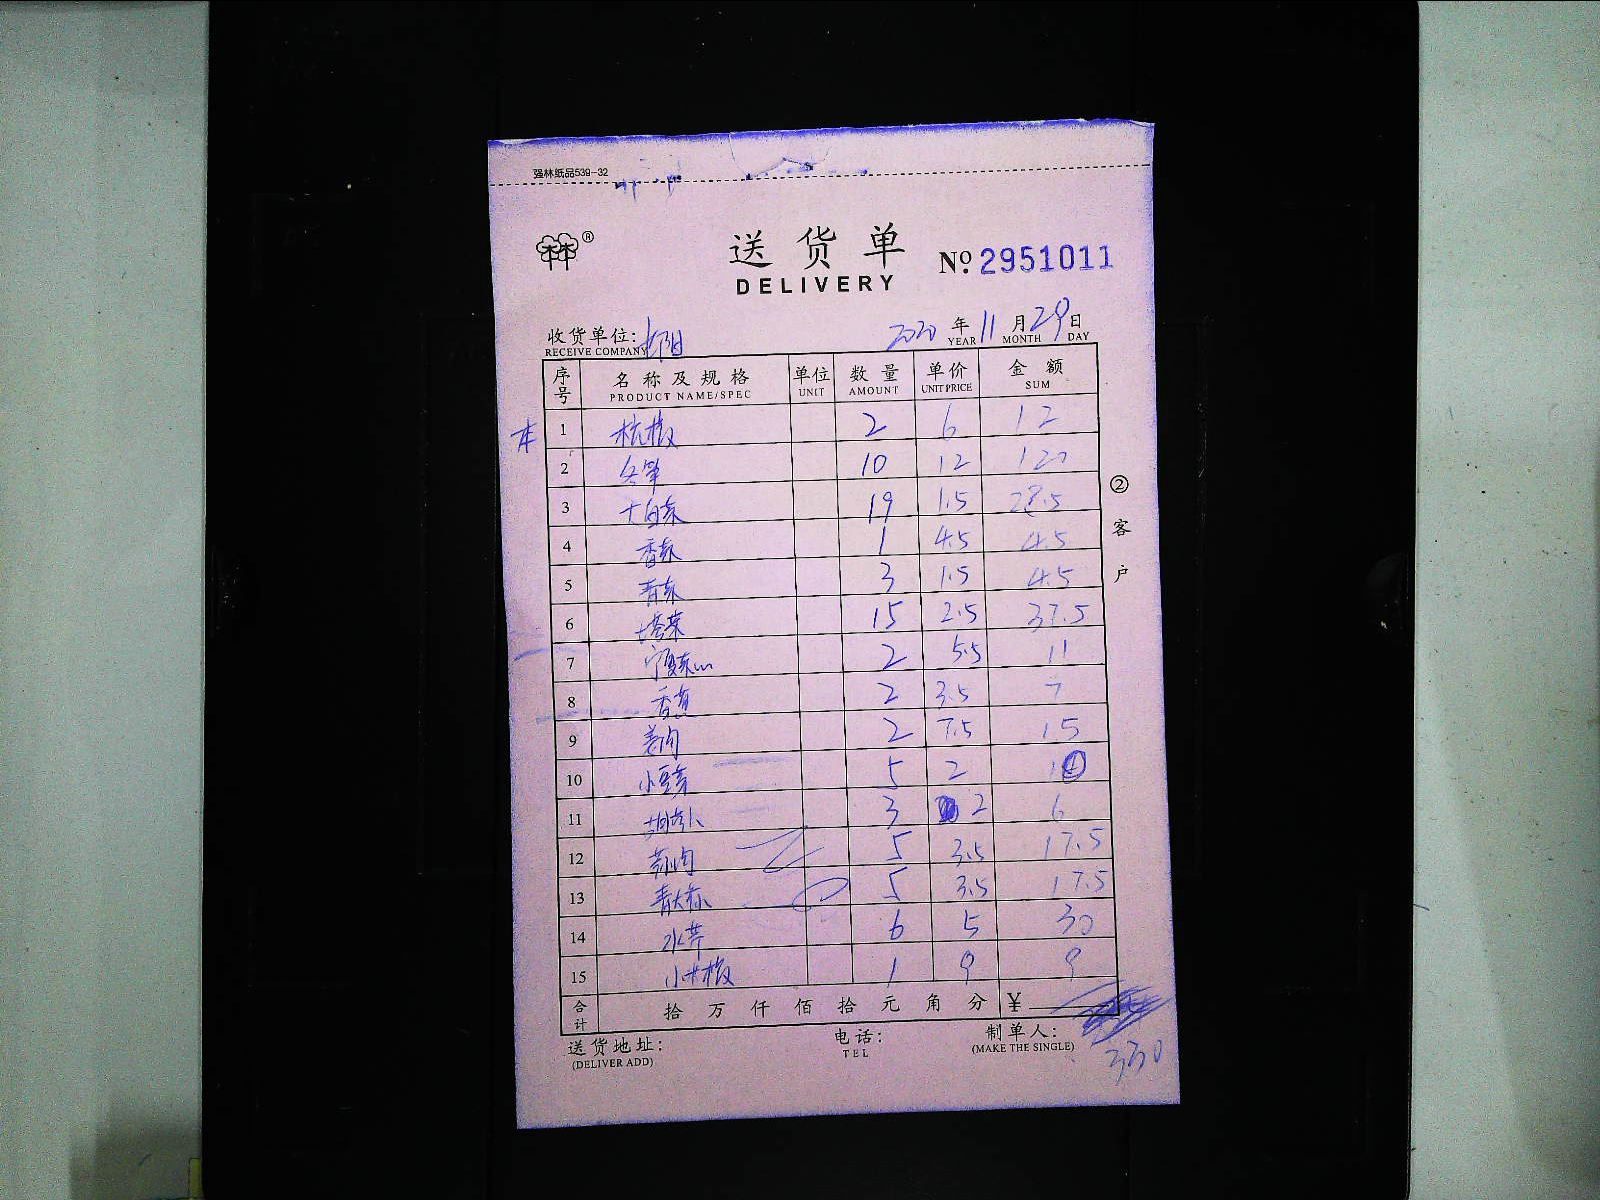 强林纸品539-32
®
送货单 № 2951011
DELIVERY
收货单位: 2020 年 11 月 29 日
RECEIVE COMPANY YEAR MONTH DAY
序号 名称及规格 单位 数量 单价 金额
PRODUCT NAME/SPEC UNIT AMOUNT UNIT PRICE SUM
1 杭椒 2 6 12
2 冬笋 10 12 120
3 大白菜 19 1.5 28.5
4 香菜 1 4.5 4.5
5 青菜 3 1.5 4.5
6 塔菜 15 2.5 37.5
7 2 5.5 11
8 香葱 2 3.5 7
9 姜肉 2 7.5 15
10 小豆芽 5 2 10
11 3 2 6
12 5 3.5 17.5
13 青大蒜 5 3.5 17.5
14 水芹 6 5 30
15 小米椒 1 9 9
合计 拾 万 仟 佰 拾 元 角 分 ¥
330
②客户
送货地址: 电话: 制单人:
(DELIVER ADD) TEL (MAKE THE SINGLE)